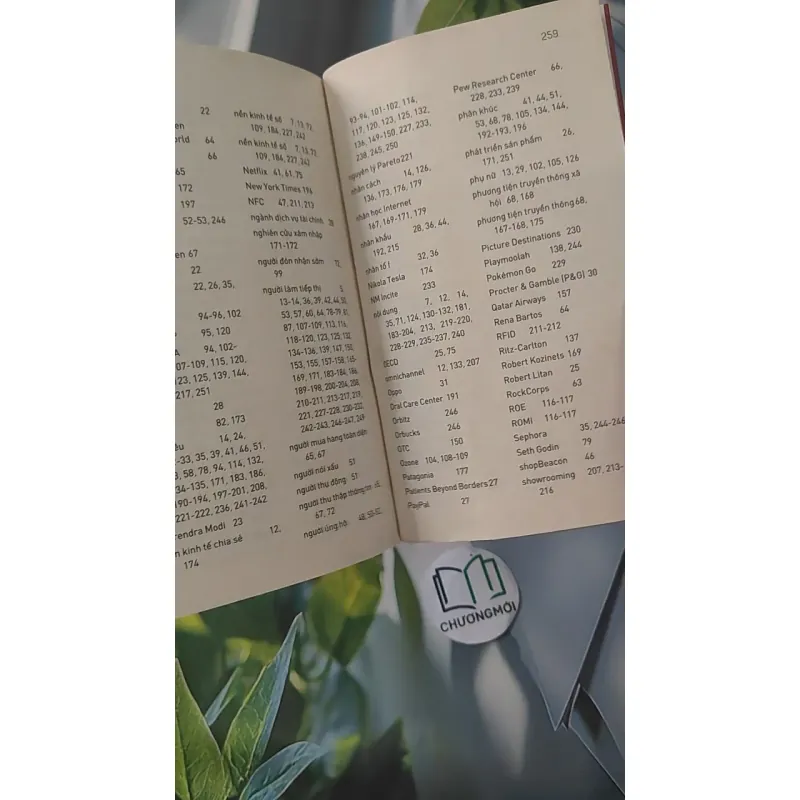 22
en
orld 64
66
65
172
197
52-53, 246
en 67
22
22, 26, 35,
94-96, 102
95, 120
A 94, 102-
07-109, 115, 120,
23, 125, 139, 144,
217, 251
28
82, 173
êu 14, 24,
2-33, 35, 39, 41, 46, 51,
3, 58, 78, 94, 114, 132,
34-135, 171, 183, 186,
90-194, 197-201, 208,
221-222, 236, 241-242
rendra Modi 23
n kinh tế chia sẻ 12,
174
nền kinh tế số 7, 13, 72,
109, 184, 227, 242
nền kinh tế số 7, 13, 72,
109, 184, 227, 242
Netflix 41, 61, 75
New York Times 196
NFC 47, 211, 213
ngành dịch vụ tài chính 38
nghiên cứu xâm nhập
171-172
người đón nhận sớm 72,
99
người làm tiếp thị
13-14, 36, 39, 42, 44, 50,
53, 57, 60, 64, 78-79, 81,
87, 107-109, 113, 116,
118-120, 123, 125, 132,
134-136, 139, 147, 150,
153, 155, 157-158, 165-
169, 171, 183-184, 186,
189-198, 200-204, 208,
210-211, 213-217, 219,
221, 227-228, 230-232,
242-243, 246-247, 249
người mua hàng toàn diện
65, 67
người nói xấu 51
người thụ động 51
người thu thập thông tin
67, 72
người ủng hộ
259
93-94, 101-102, 114,
117, 120, 123, 125, 132,
136, 149-150, 227, 233,
238, 245, 250
nguyên lý Pareto 221
nhân cách 14, 126,
136, 173, 176, 179
nhân học Internet
167, 169-171, 179
nhân khẩu 28, 36, 44,
192, 215
nhân tố I 32, 36
Nikola Tesla 174
NM Incite 233
nội dung 7, 12, 14,
35, 71, 124, 130-132, 181,
183-204, 213, 219-220,
228-229, 235-237, 240
OECD 25, 75
omnichannel 12, 133, 207
Oppo 31
Oral Care Center 191
Orbitz 246
Orbucks 246
OTC 150
Ozone 104, 108-109
Patagonia 177
Patients Beyond Borders 27
PayPal 27
Pew Research Center 66,
228, 233, 239
phân khúc 41, 44, 51,
53, 68, 78, 105, 134, 144,
192-193, 196
phát triển sản phẩm 26,
171, 251
phụ nữ 13, 29, 102, 105, 126
phương tiện truyền thông xã
hội 68, 168
phương tiện truyền thông 68,
167-168, 175
Picture Destinations 230
Playmoolah 138, 244
Pokémon Go 229
Procter & Gamble (P&G) 30
Qatar Airways 157
Rena Bartos 64
RFID 211-212
Ritz-Carlton 137
Robert Kozinets 169
Robert Litan 25
RockCorps 63
ROE 116-117
ROMI 116-117
Sephora 35, 244-246
Seth Godin 79
shopBeacon 46
showrooming 207, 213-
216
CHƯƠNG MỚI